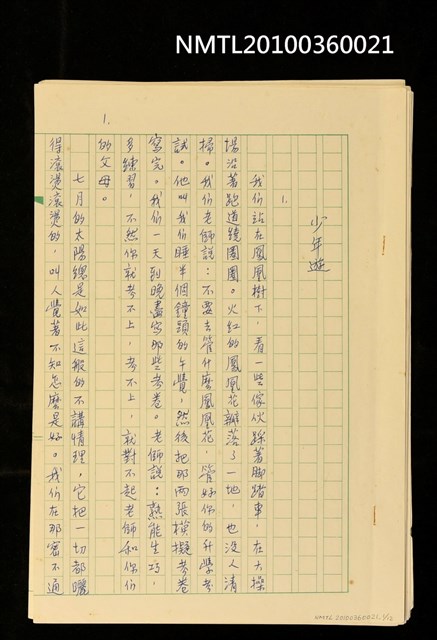 NMTL20100360021
少年遊
1.
我們站在鳳凰樹下，看一些傢伙踩著腳踏車，在大操
場沿著跑道繞圈圈。火紅的鳳凰花瓣落了一地，也沒人清
掃。我們老師說：不要去管什麼鳳凰花，管好你的升學考
試。他叫我們睡半個鐘頭的午覺，然後把那兩張模擬考卷
寫完。我們一天到晚盡寫那些考卷。老師說：熟能生巧，
多練習，不然你就考不上，考不上，就對不起老師和你們
的父母。
七月的太陽總是如此這般的不講情理，它把一切都曬
得滾燙滾燙的，叫人覺著不知怎麼是好。我們在那密不通
1.
NMTL20100360021